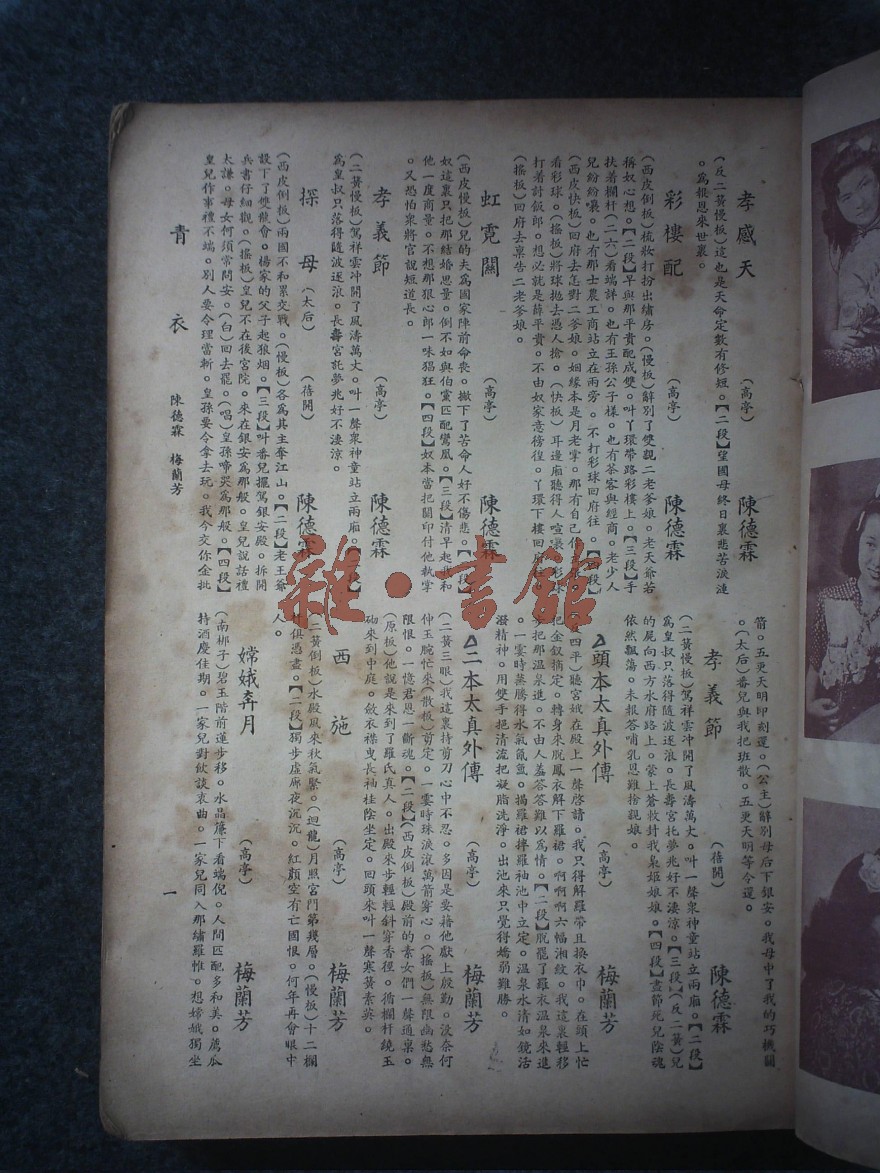 孝感天　（高亭）　陳德霖
（反二簧慢板）這也是天命定數有修短。【二段】望國母終日裏悲苦淚漣
。為報恩來世裏。
彩樓配　（高亭）　陳德霖
（西皮倒板）梳妝打扮出繡房。（慢板）辭別了雙親二老爹娘。老天爺若
稱奴心想。【二段】早與那平貴配成雙。叫丫環帶路彩樓上。【三段】手
扶着欄杆（二六）看端詳。也有王孫公子樣。也有茶客與經商。老少人
兒紛紛嚷。也有那士農工商站立在兩旁。不打彩球回府往。【四段】
（西皮快板）回府去怎對二爹娘。姻緣本是月老掌。那有自己
看彩球。（搖板）將球拋去憑人搶。（快板）耳邊廂聽得人喧嚷。彩球
打着討飯郎。想必就是薛平貴。不由奴家意徬徨。丫環下樓回府
（搖板）回府去稟告二老爹娘。
虹霓關　（高亭）　陳德霖
（西皮慢板）兒的夫為國家陣前命喪。撇下了苦命人好不傷悲。【二段】
奴這裏只把那結婚思量。倒不如與伯黨匹配鸞凰。【三段】清早起我和
他一度商量。不想那狠心郎一味猖狂。【四段】奴本當把關印付他執掌
。又恐怕眾將官說短道長。
孝義節　（高亭）　陳德霖
（二簧慢板）駕祥雲冲開了風濤萬丈。叫一聲眾神童站立兩廂。【二段】
為皇叔只落得隨波逐浪。長壽宮託夢兆好不淒涼。
探母　（太后）　（蓓開）　陳德霖
（西皮倒板）兩國不和累交戰。（慢板）各為其主奪江山。【二段】老王爺
設下了雙龍會。楊家的父子起狼烟。【三段】叫番兒擺駕銀安殿。拆開
兵書仔細觀。（搖板）皇兒不在後宮院。來在銀安為那般。皇兒說話禮
太謙。母女何須常問安。（白）回去罷。（唱）皇孫啼哭為那般。【四段】
皇兒作事禮不端。別人要令理當斬。皇孫要令拿去玩。我今交你金批
青衣　陳德霖　梅蘭芳
箭。五更天明卽刻還。（公主）辭別母后下銀安。我母中了我的巧機關
。（太后）番兒與我把班散。五更天明等令還。
孝義節　（蓓開）　陳德霖
（二簧慢板）駕祥雲冲開了風濤萬丈。叫一聲眾神童站立兩廂。【二段】
為皇叔只落得隨波逐浪。長壽宮托夢兆好不淒涼。【三段】（反二簧）兒
的屍向西方水府路上。蒙上蒼敕封我梟姬娘娘。【四段】盡節死兒陰魂
依然飄蕩。未報答哺乳恩難捨親娘。
頭本太真外傳　（高亭）　梅蘭芳
四平）聽宮娥在殿上一聲啓請。我只得解羅帶且換衣巾。在頭上忙
把金釵摘定。轉身來脫鳳衣解下羅裙。啊啊啊六幅湘紋。我這裏輕移
步把那温泉進。不由人羞答答難以為情。【二段】脫罷了羅衣温泉來進
。一霎時蒸騰得水氣氤氳。揭羅裙摔羅袖池中立定。温泉水清如鏡活
潑精神。用雙手把清流把凝脂洗淨。出池來只覺得嬌弱難勝。
二本太真外傳　（高亭）　梅蘭芳
（二簧三眼）我這裏持剪刀心中不忍。多因是要藉他獻上殷勤。沒奈何
伸玉腕忙來（散板）剪定。一霎時珠淚滾萬箭穿心。（搖板）無限幽愁無
限恨。一憶君恩一斷魂。【二段】（西皮倒板）殿前的素女們一聲通稟。
（原板）他說是來到了羅氏真人。出殿來步輕輕斜穿香徑。循欄杆繞玉
砌來到中庭。斂衣襟曳長袖桂陰坐定。回頭來叫一聲寒簧素英。
西施　（高亭）　梅蘭芳
（二簧倒板）水殿風來秋氣緊。（迴龍）月照宮門第幾層。（慢板）十二欄
杆俱憑盡。【二段】獨步虛廊夜沉沉。紅顏空有亡國恨。何年再會眼中
人。
嫦娥奔月　（高亭）　梅蘭芳
（南梆子）碧玉階前蓮步移。水晶簾下看端倪。人間匹配多和美。薦瓜
持酒慶佳期。一家兒對飲談衷曲。一家兒同入那繡羅帷。想嫦娥獨坐
一
雜·書館